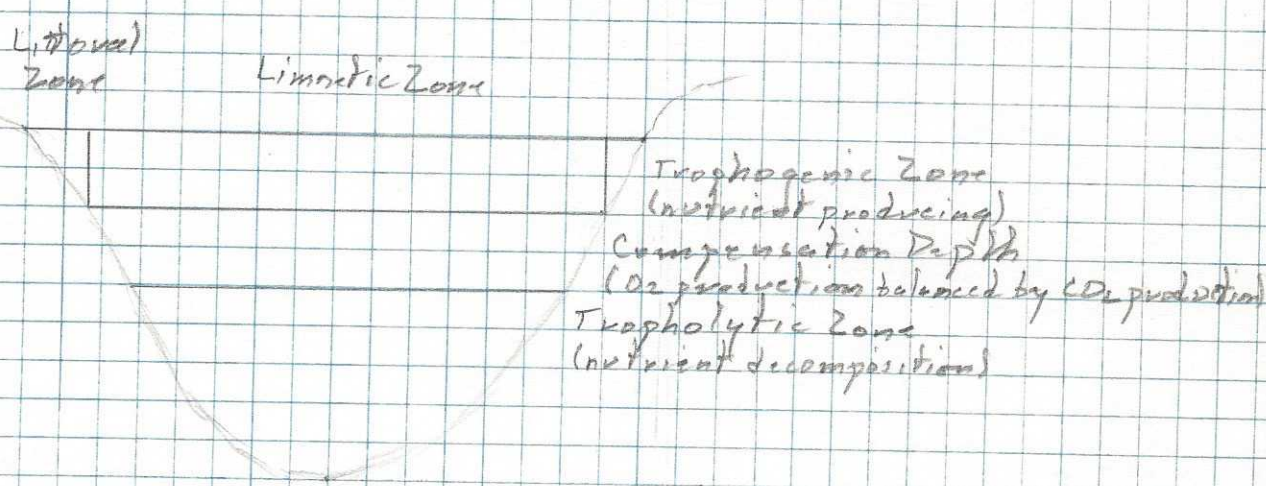 Littoral
Zone
Limnetic Zone
Trophogenic Zone
(nutrient producing)
Compensation Depth
(O2 production balanced by CO2 production)
Tropholytic Zone
(nutrient decomposition)